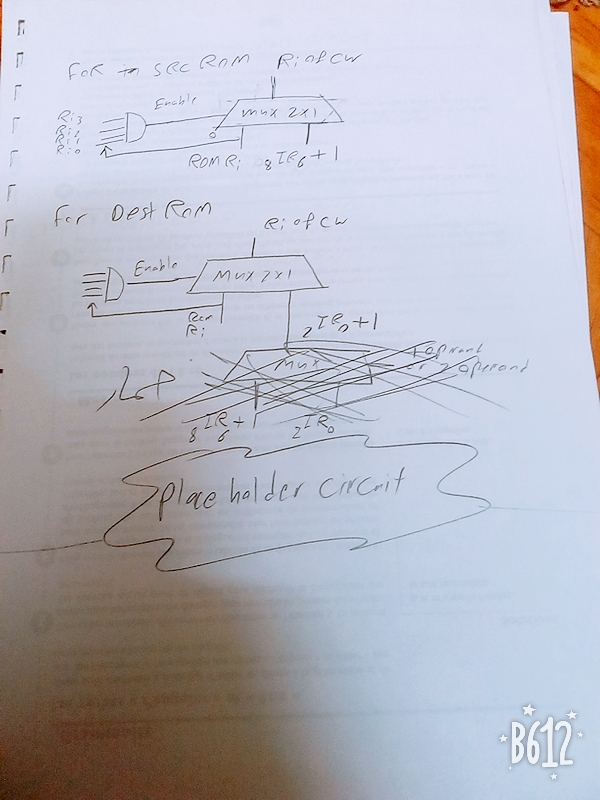 FOR in SRC ROM Ri of CW
Enable
Ri3
Ri2
Ri1
Ri0
MUX 2x1
0
ROM Ri
8IR6+1
For Dest ROM
Ri of CW
Enable
MUX 2x1
Ri
2IR0+1
MUX
or 2 operand
8IR6+1
2IR0
place holder circuit
B612